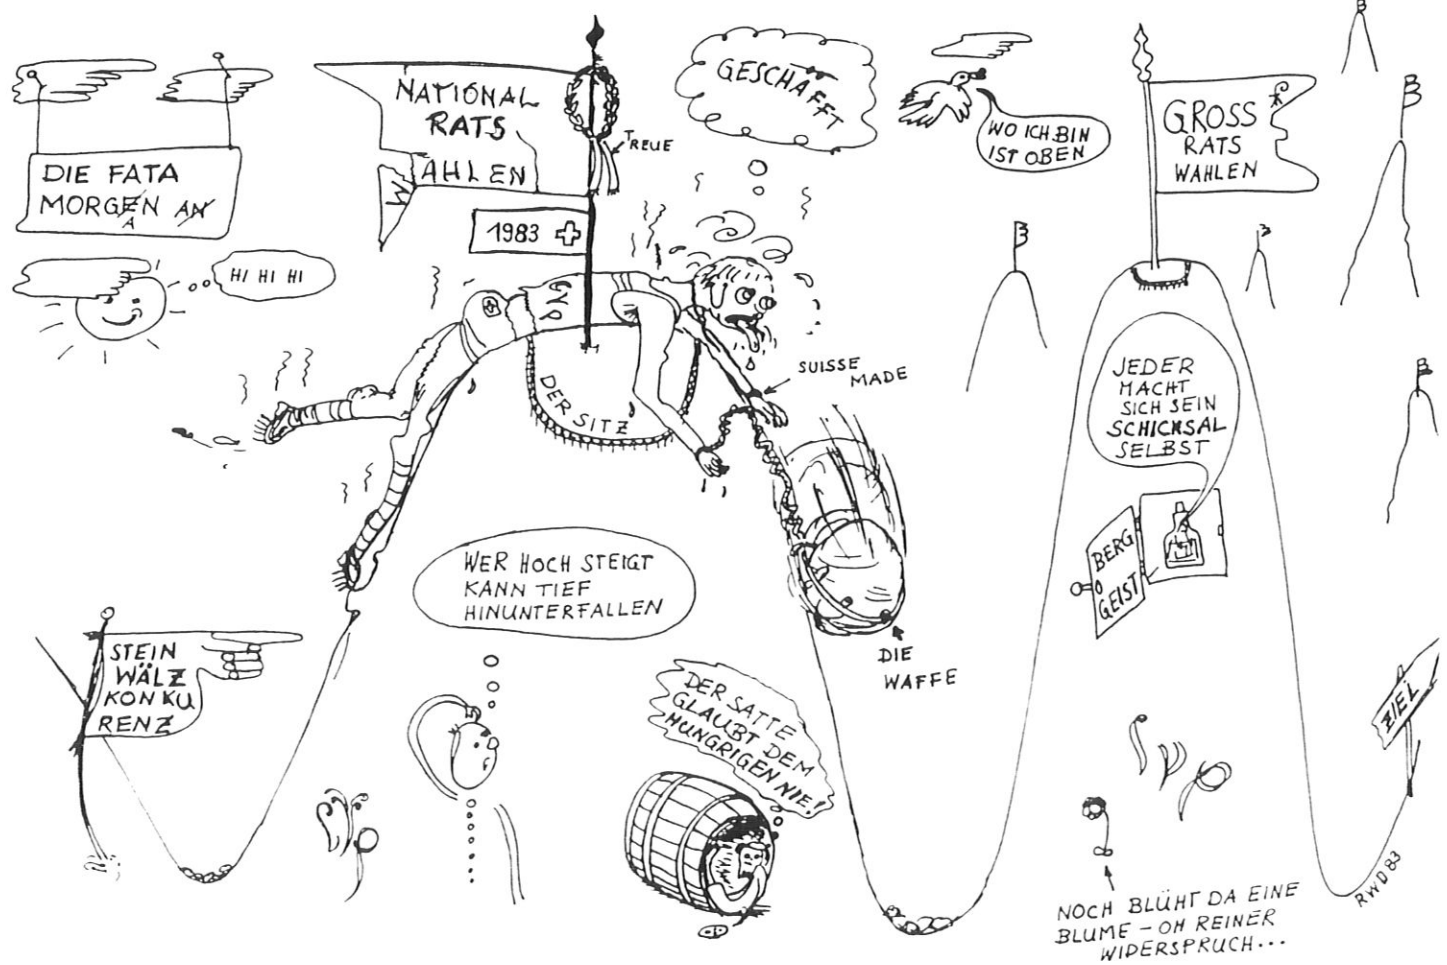 DIE FATA
MORGEN AN
A
NATIONAL
RATS
WAHLEN
TREUE
1983
GESCHAFFT
WO ICH BIN
IST OBEN
GROSS
RATS
WAHLEN
HI HI HI
DER SITZ
SUISSE
MADE
JEDER
MACHT
SICH SEIN
SCHICKSAL
SELBST
BERG
GEIST
WER HOCH STEIGT
KANN TIEF
HINUNTERFALLEN
DIE
WAFFE
STEIN
WÄLZ
KONKU
RENZ
DER SATTE
GLAUBT DEM
HUNGRIGEN NIE!
ZIEL
NOCH BLÜHT DA EINE
BLUME – OH REINER
WIDERSPRUCH...
RWD 83